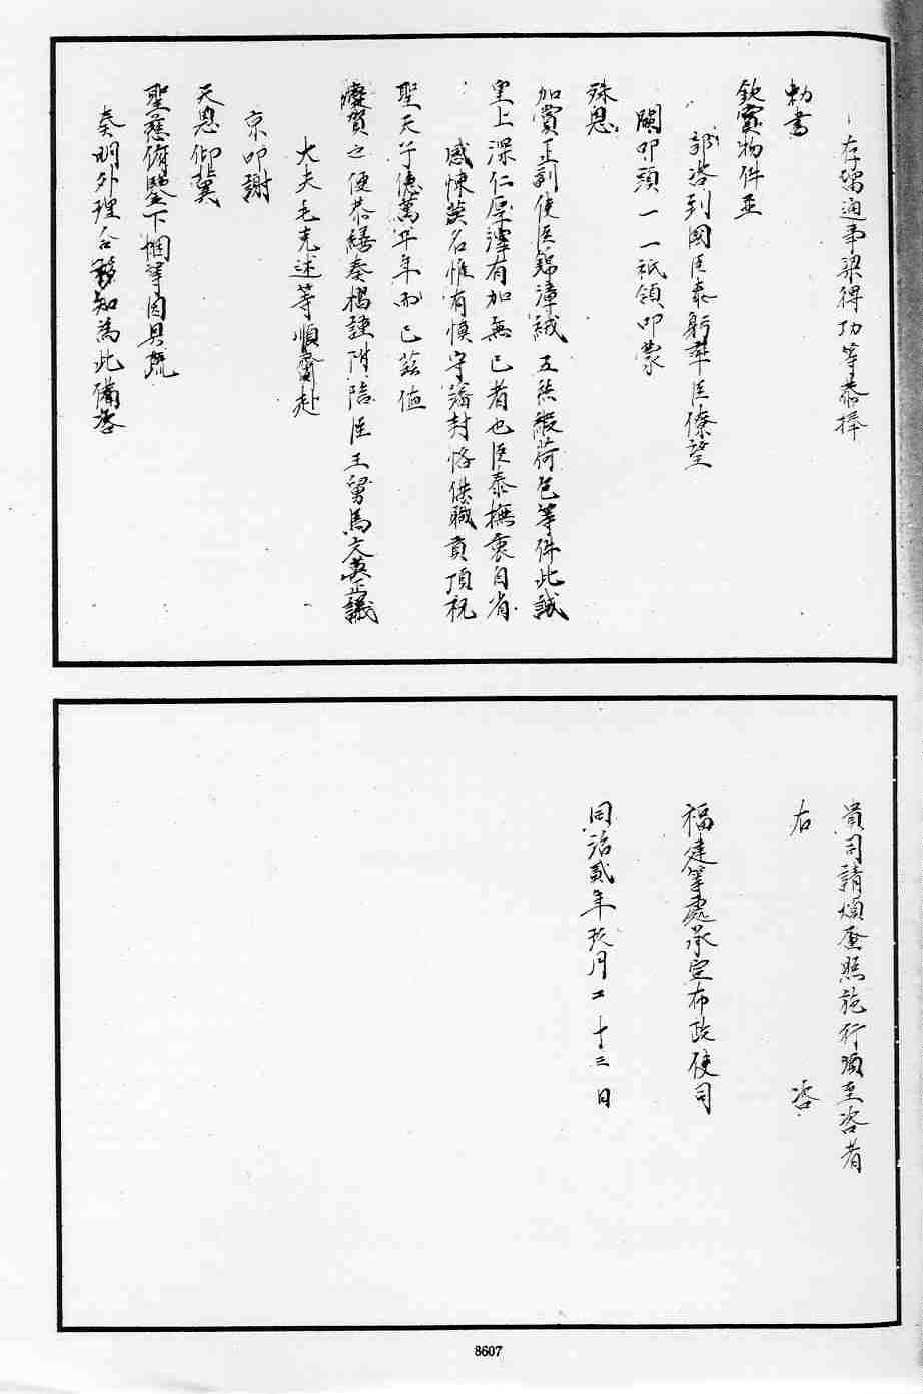 存瑠通事梁得功等恭捧
勅書
欽賞物件並
部咨到國臣泰躬率臣僚望
闕叩頭一一祇領叩蒙
殊恩
加賞正副使臣錦漳絨五絲緞荷包等件此誠
皇上深仁厚澤有加無已者也臣泰撫衷自省
感悚莫名惟有慎守藩封恪供職貢頂祝
聖天子億萬斯年而已茲值
慶賀之便恭繕奏摺謹附陪臣王舅馬文英正議
大夫毛克述等順齎赴
京叩謝
天恩仰冀
聖慈俯鑒下悃等因具疏
奏明外理合移知為此備咨
貴司請煩查照施行須至咨者
右 咨
福建等處承宣布政使司
同治貳年玖月二十三日
8607